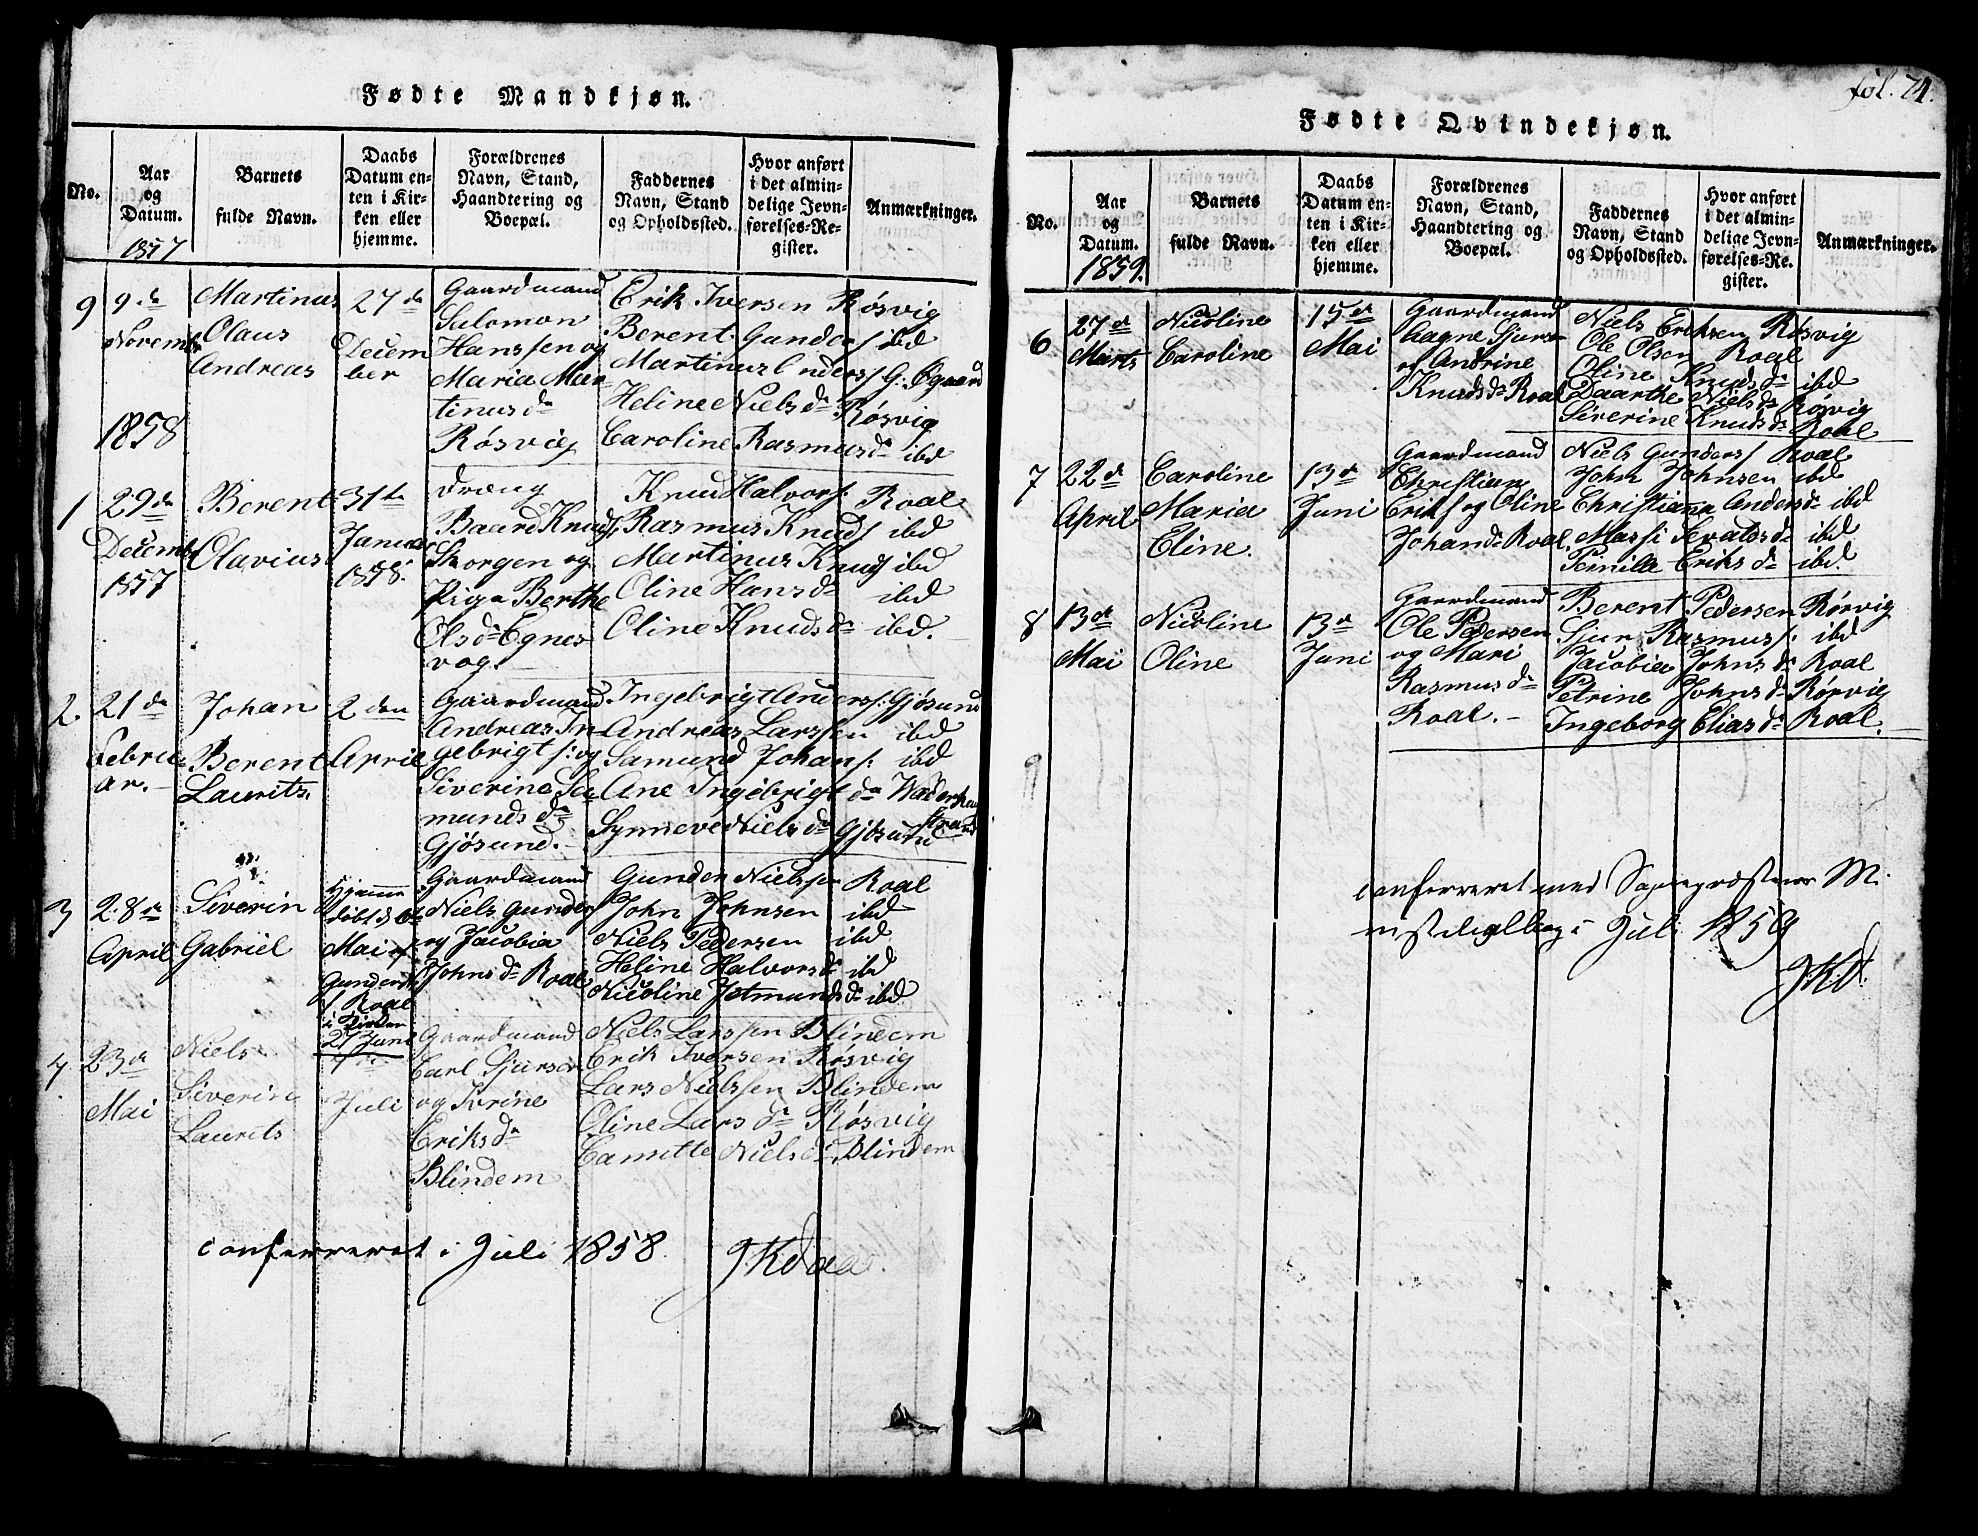 Fødte Mandkjøn.
No.
Aar og Datum.
Barnets fulde Navn.
Daabs Datum enten i Kirken eller hjemme.
Forældrenes Navn, Stand, Haandtering og Boepæl.
Faddernes Navn, Stand og Opholdssted.
Hvor anført i det almindelige Jevnførelses-Register.
Anmærkninger.
1857
9
9de
Novemb
Martinus
Olaus
Andreas
27de
Decem
ber
Gaardmand
Salomon
Hanssen og
Maria Mar
tinusdr
Røsvig
Erik Iversen Røsvig
Berent Gunders ibd
Martinus Anders G: Øgaard
Heline Nielsdr Røsvig
Caroline Rasmusdr ibd
1858
1
29de
Decemb
1857
Berent
Olavius
31te
Januar
1858.
Dreng
Baard Knuds
Skorgen og
Pige Berthe
Olsdr Egnes
vog.
Knud Halvors: Roal
Rasmus Knuds ibd
Martinus Knuds ibd
Oline Hansdr ibd
Oline Knudsdr ibd.
2.
21de
Febru
ar.
Johan
Berent
Laurits.
2den
April
Gaardmand
Andreas In-
gebrigts: og
Siverine Sa
mundsdr
Gjøsund.
Ingebrigt Anders: Gjøsund
Andreas Larssen ibd
Samund Johans: ibd
Ane Ingebrigtdr
Synneve Nielsdr Gjøsund
3
28de
April
Siverin
Gabriel
Hjemme
døbt 3
Mai af
Roal
i Kirken
27 Juni
Gaardmand
Niels Gunders
og Jacobia
Johnsdr Roal
Gunder Nielssen Roal
John Johnsen ibd
Niels Pedersen ibd
Heline Halvorsdr ibd
Nicoline Jetmundsdr ibd
4
23de
Mai
Niels
Siverin
Laurits
Juli
Gaardmand
Carl Sjursen
og Ivrine
Eriksdr
Blindem
Niels Larssen Blindem
Erik Iversen Røsvig
Lars Nielssen Blindem
Oline Larsdr Røsvig
Nielsdr Blindem
conferreret i Juli 1858. JKDaae.
fol. 74.
Fødte Qvindekjøn.
No.
Aar og Datum.
Barnets fulde Navn.
Daabs Datum enten i Kirken eller hjemme.
Forældrenes Navn, Stand, Haandtering og Boepæl.
Faddernes Navn, Stand og Opholdssted.
Hvor anført i det almindelige Jevnførelses-Register.
Anmærkninger.
1859.
6
27de
Marts
Nicoline
Caroline
15de
Mai
Gaardmand
Aagne Sjurs
og Andrine
Knudsdr Roal
Niels Eriksen Røsvig
Ole Olsen Roal
Oline Knudsdr ibd
Daarthe Nielsdr Røsvig
Siverine Knudsdr Roal
7
22de
April
Caroline
Maria
Eline.
13de
Juni
Gaardmand
Christian
Eriks og Oline
Johandr Roal.
Niels Gunders Roal
John Johnsen ibd
Christianna Andersdr ibd
Massi Sevatsdr ibd
Pernille Eriksdr ibd.
8
13de
Mai
Nicoline
Oline
13de
Juni
Gaardmand
Ole Pedersen
og Mari
Rasmusdr
Roal.
Berent Pedersen Rørvig
Sjur Rasmuss: ibd
Jacobia Johnsdr Roal
Petrine Johnsdr Rørvig
Ingeborg Eliasdr Roal.
9
conferreret med Sognepræstens M.
i Juli 1859
JKD.